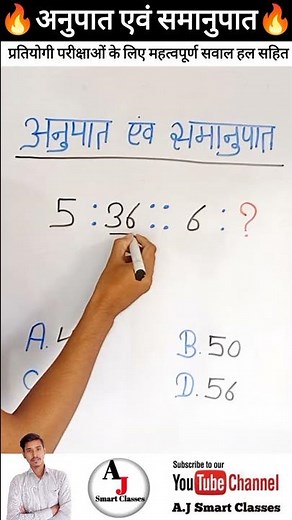 🔥अनुपात एवं समानुपात🔥
प्रतियोगी परीक्षाओं के लिए महत्वपूर्ण सवाल हल सहित
अनुपात एंव समानुपात
5 : 36 :: 6 : ?
A. B. 50
D. 56
A.J
Smart Classes
Subscribe to our
YouTube Channel
A.J Smart Classes